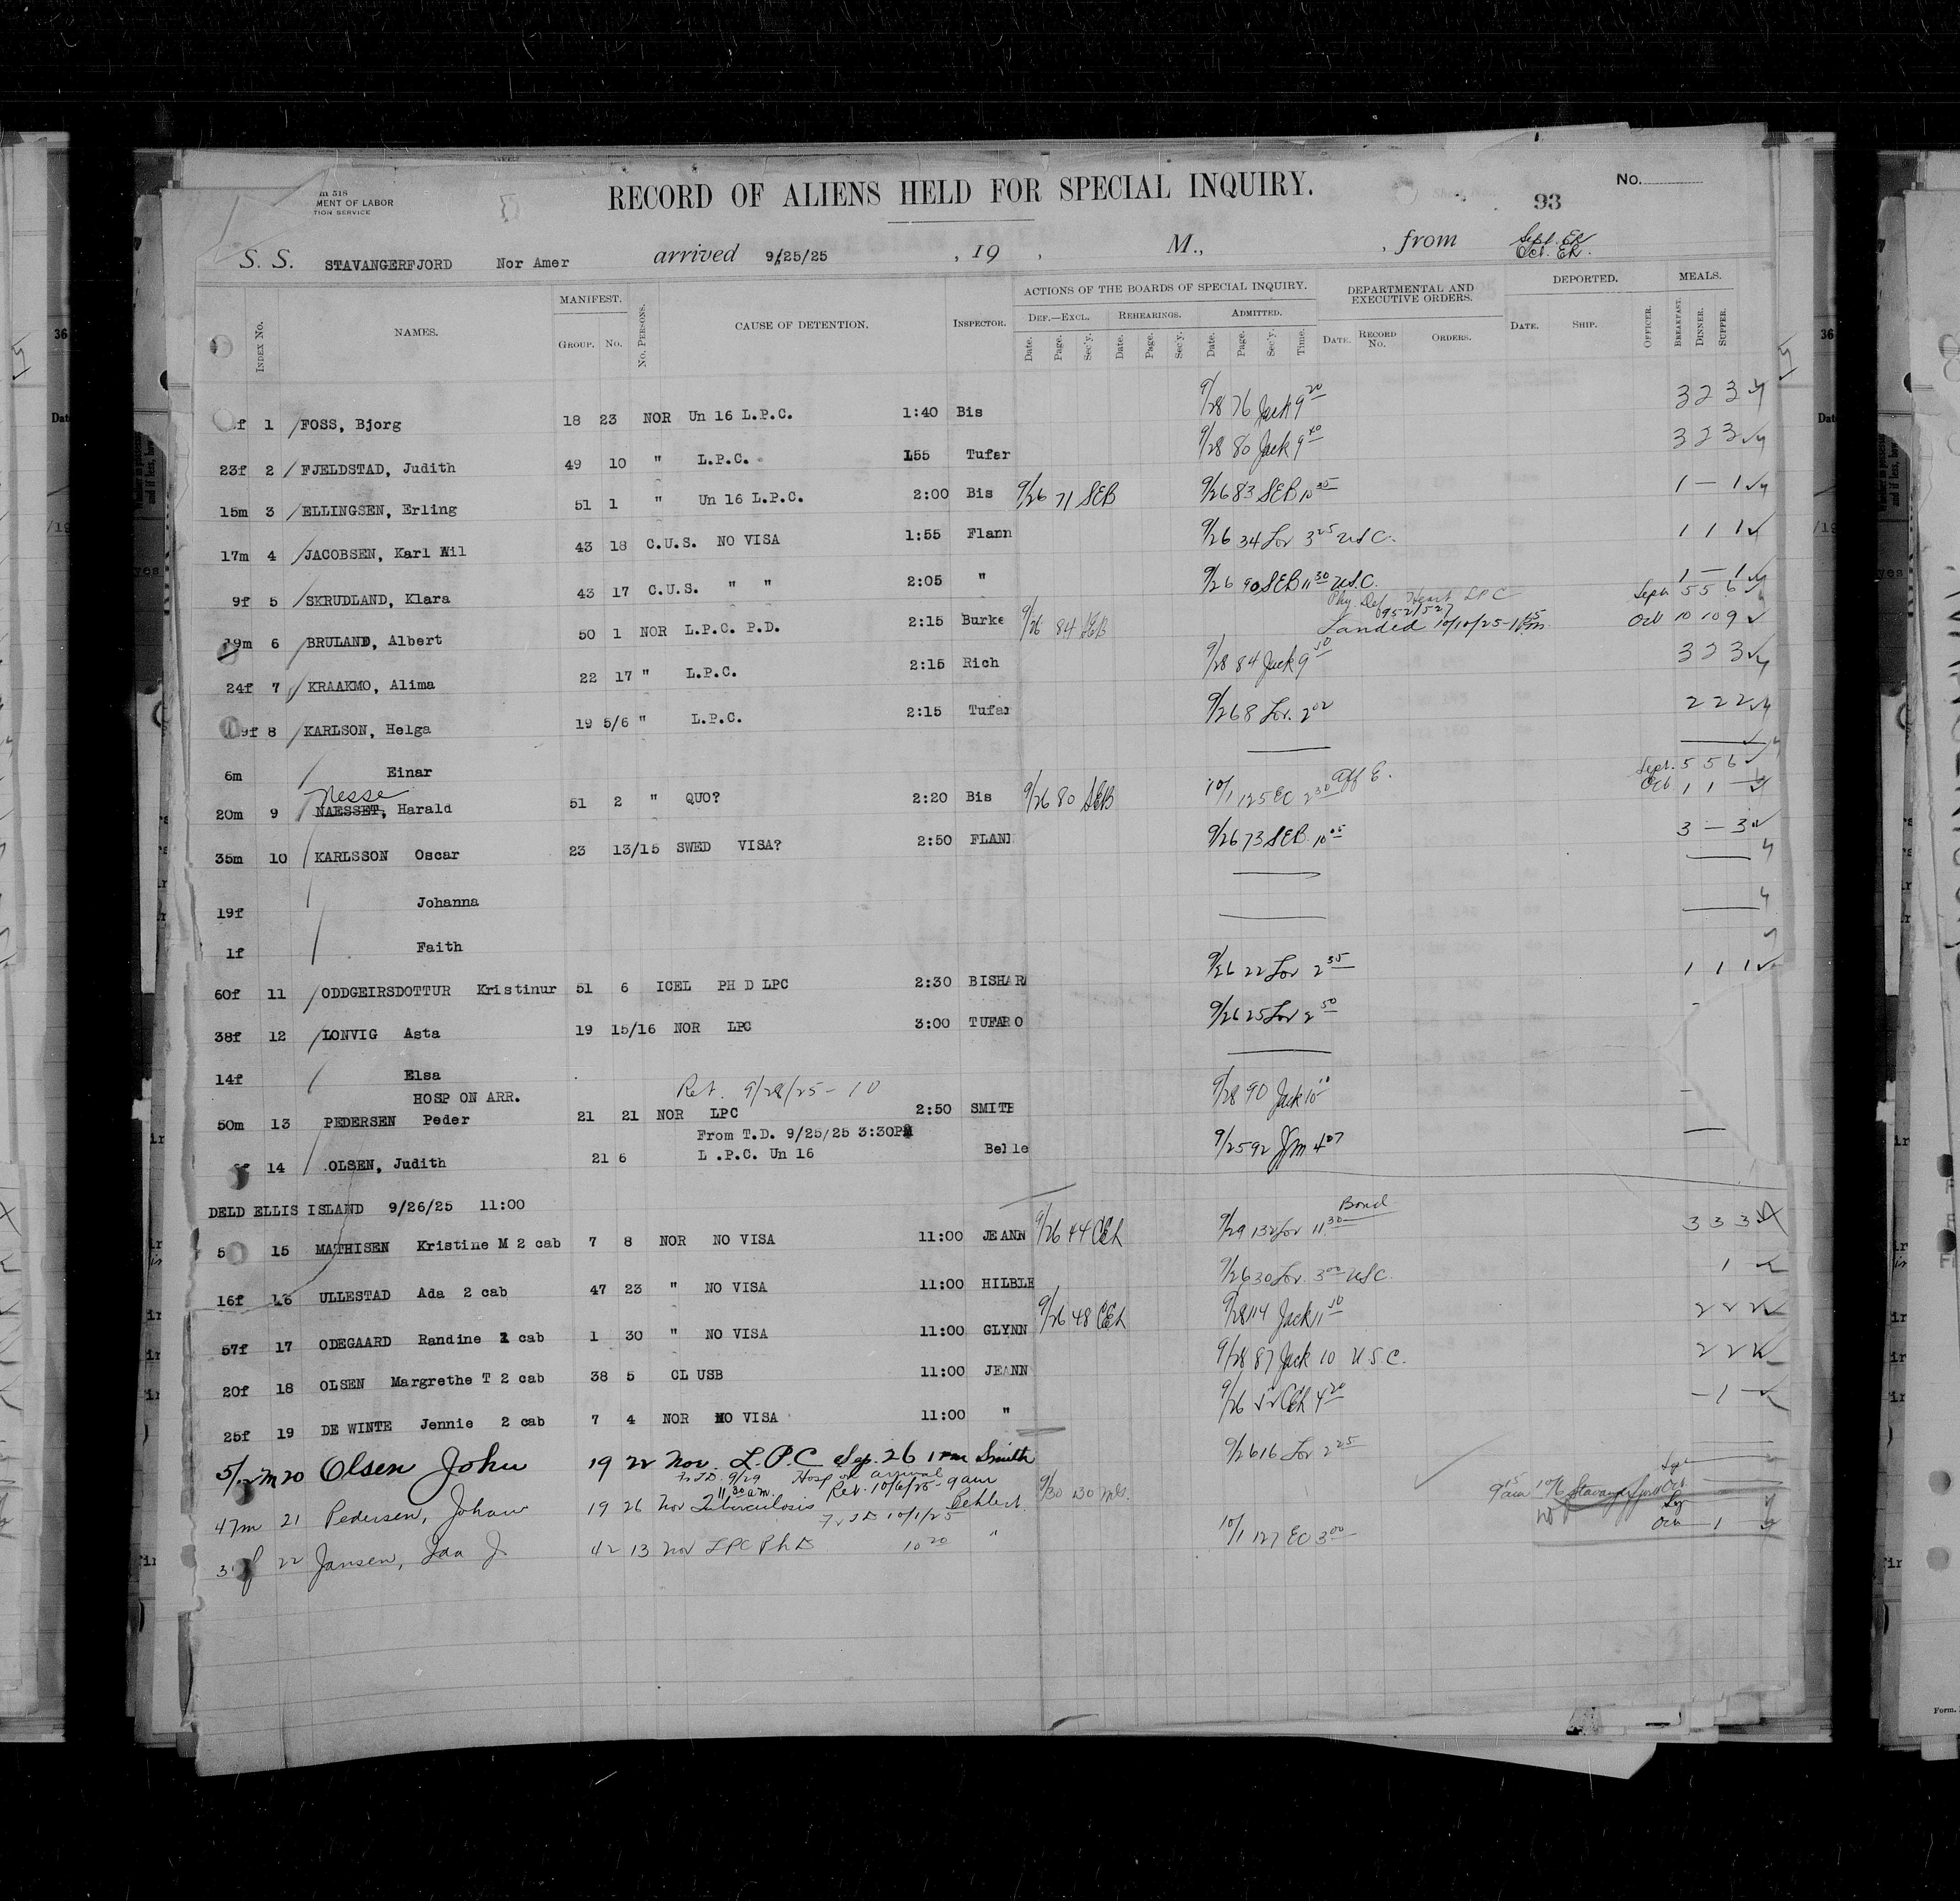 m 518
MENT OF LABOR
TION SERVICE
RECORD OF ALIENS HELD FOR SPECIAL INQUIRY.
No.
93
S. S. STAVANGERFJORD Nor Amer arrived 9/25/25 , 19 , M., , from
Sept. ER
Oct. ER.
INDEX No. NAMES. MANIFEST. GROUP. No. No. PERSONS. CAUSE OF DETENTION. INSPECTOR.
ACTIONS OF THE BOARDS OF SPECIAL INQUIRY. DEF.—EXCL. REHEARINGS. ADMITTED.
Date. Page. Sec'y. Date. Page. Sec'y. Date. Page. Sec'y. Time.
DEPARTMENTAL AND EXECUTIVE ORDERS. DATE. RECORD No. ORDERS.
DEPORTED. DATE. SHIP. OFFICER.
MEALS. BREAKFAST. DINNER. SUPPER.
f 1 FOSS, Bjorg 18 23 NOR Un 16 L.P.C. 1:40 Bis 9/28 76 Jack 9 20 3 2 3
23f 2 FJELDSTAD, Judith 49 10 " L.P.C. 155 Tufar 9/28 80 Jack 9 40 3 2 3
15m 3 ELLINGSEN, Erling 51 1 " Un 16 L.P.C. 2:00 Bis 9/26 71 SEB 9/26 83 SEB 10 35 1 – 1
17m 4 JACOBSEN, Karl Wil 43 18 C.U.S. NO VISA 1:55 Flann 9/26 34 Lor 3 25 USC. 1 1 1
9f 5 SKRUDLAND, Klara 43 17 C.U.S. " " 2:05 " 9/26 90 SEB 11 30 U.S.C. 1 – 1
Phy. Def Heart LPC Sept 5 5 6
19m 6 BRULAND, Albert 50 1 NOR L.P.C. P.D. 2:15 Burke 9/26 84 SEB Landed 10/10/25 Oct 10 10 9
24f 7 KRAAKMO, Alima 22 17 " L.P.C. 2:15 Rich 9/28 84 Jack 9 50 3 2 3
9f 8 KARLSON, Helga 19 5/6 " L.P.C. 2:15 Tufar 9/26 8 Lor. 2 02 2 2 2
6m Einar
Sept. 5 5 6
Nesse
20m 9 NAESSET, Harald 51 2 " QUO? 2:20 Bis 9/26 80 SEB 10/1 125 EO 2 30 Aff E. Oct 1 1 –
35m 10 KARLSSON Oscar 23 13/15 SWED VISA? 2:50 FLANN 9/26 73 SEB. 10 05 3 – 3
19f Johanna
1f Faith
60f 11 ODDGEIRSDOTTUR Kristinur 51 6 ICEL PH D LPC 2:30 BISHAR 9/26 22 Lor 2 35 1 1 1
38f 12 LONVIG Asta 19 15/16 NOR LPC 3:00 TUFARO 9/26 25 Lor 2 50
14f Elsa
HOSP ON ARR. Ret. 9/28/25 - 10
50m 13 PEDERSEN Peder 21 21 NOR LPC 2:50 SMITH 9/28 90 Jack 10 10
From T.D. 9/25/25 3:30PM
14 OLSEN, Judith 21 6 L.P.C. Un 16 Belle 9/25 92 4 07
DELD ELLIS ISLAND 9/26/25 11:00
5 15 MATHISEN Kristine M 2 cab 7 8 NOR NO VISA 11:00 JEANN 9/26 44 CEh 9/29 132 Lor 11 30 Bond 3 3 3
16f 16 ULLESTAD Ada 2 cab 47 23 " NO VISA 11:00 HILBLE 9/26 30 Lor. 3 00 USC. 1
57f 17 ODEGAARD Randine 2 cab 1 30 " NO VISA 11:00 GLYNN 9/26 48 CEh 9/28 114 Jack 11 50 2 2 2
20f 18 OLSEN Margrethe T 2 cab 38 5 CL USB 11:00 JEANN 9/28 87 Jack 10 U.S.C. 2 2 2
25f 19 DE WINTE Jennie 2 cab 7 4 NOR NO VISA 11:00 " 9/26 CEh 4 20 – 1 –
5/12 m 20 Olsen John 19 22 Nor. L.P.C Sep. 26 1 PM Smith 9/26 16 Lor 2 25
Fr T.D. 9/29 Hosp on arrival
11 30 a.m. Ret. 10/6/25 - 9 am
47m 21 Pedersen, Johan 19 26 Nor Tuberculosis 9/30 130 Mls. 9 15 am 10/6 Stavangerfjord Oct
Fr T D 10/1/25
3 f 22 Jansen, Ida J 42 13 Nor LPC Ph D 10 20 " 10/1 127 EO 3 00 Oct – 1